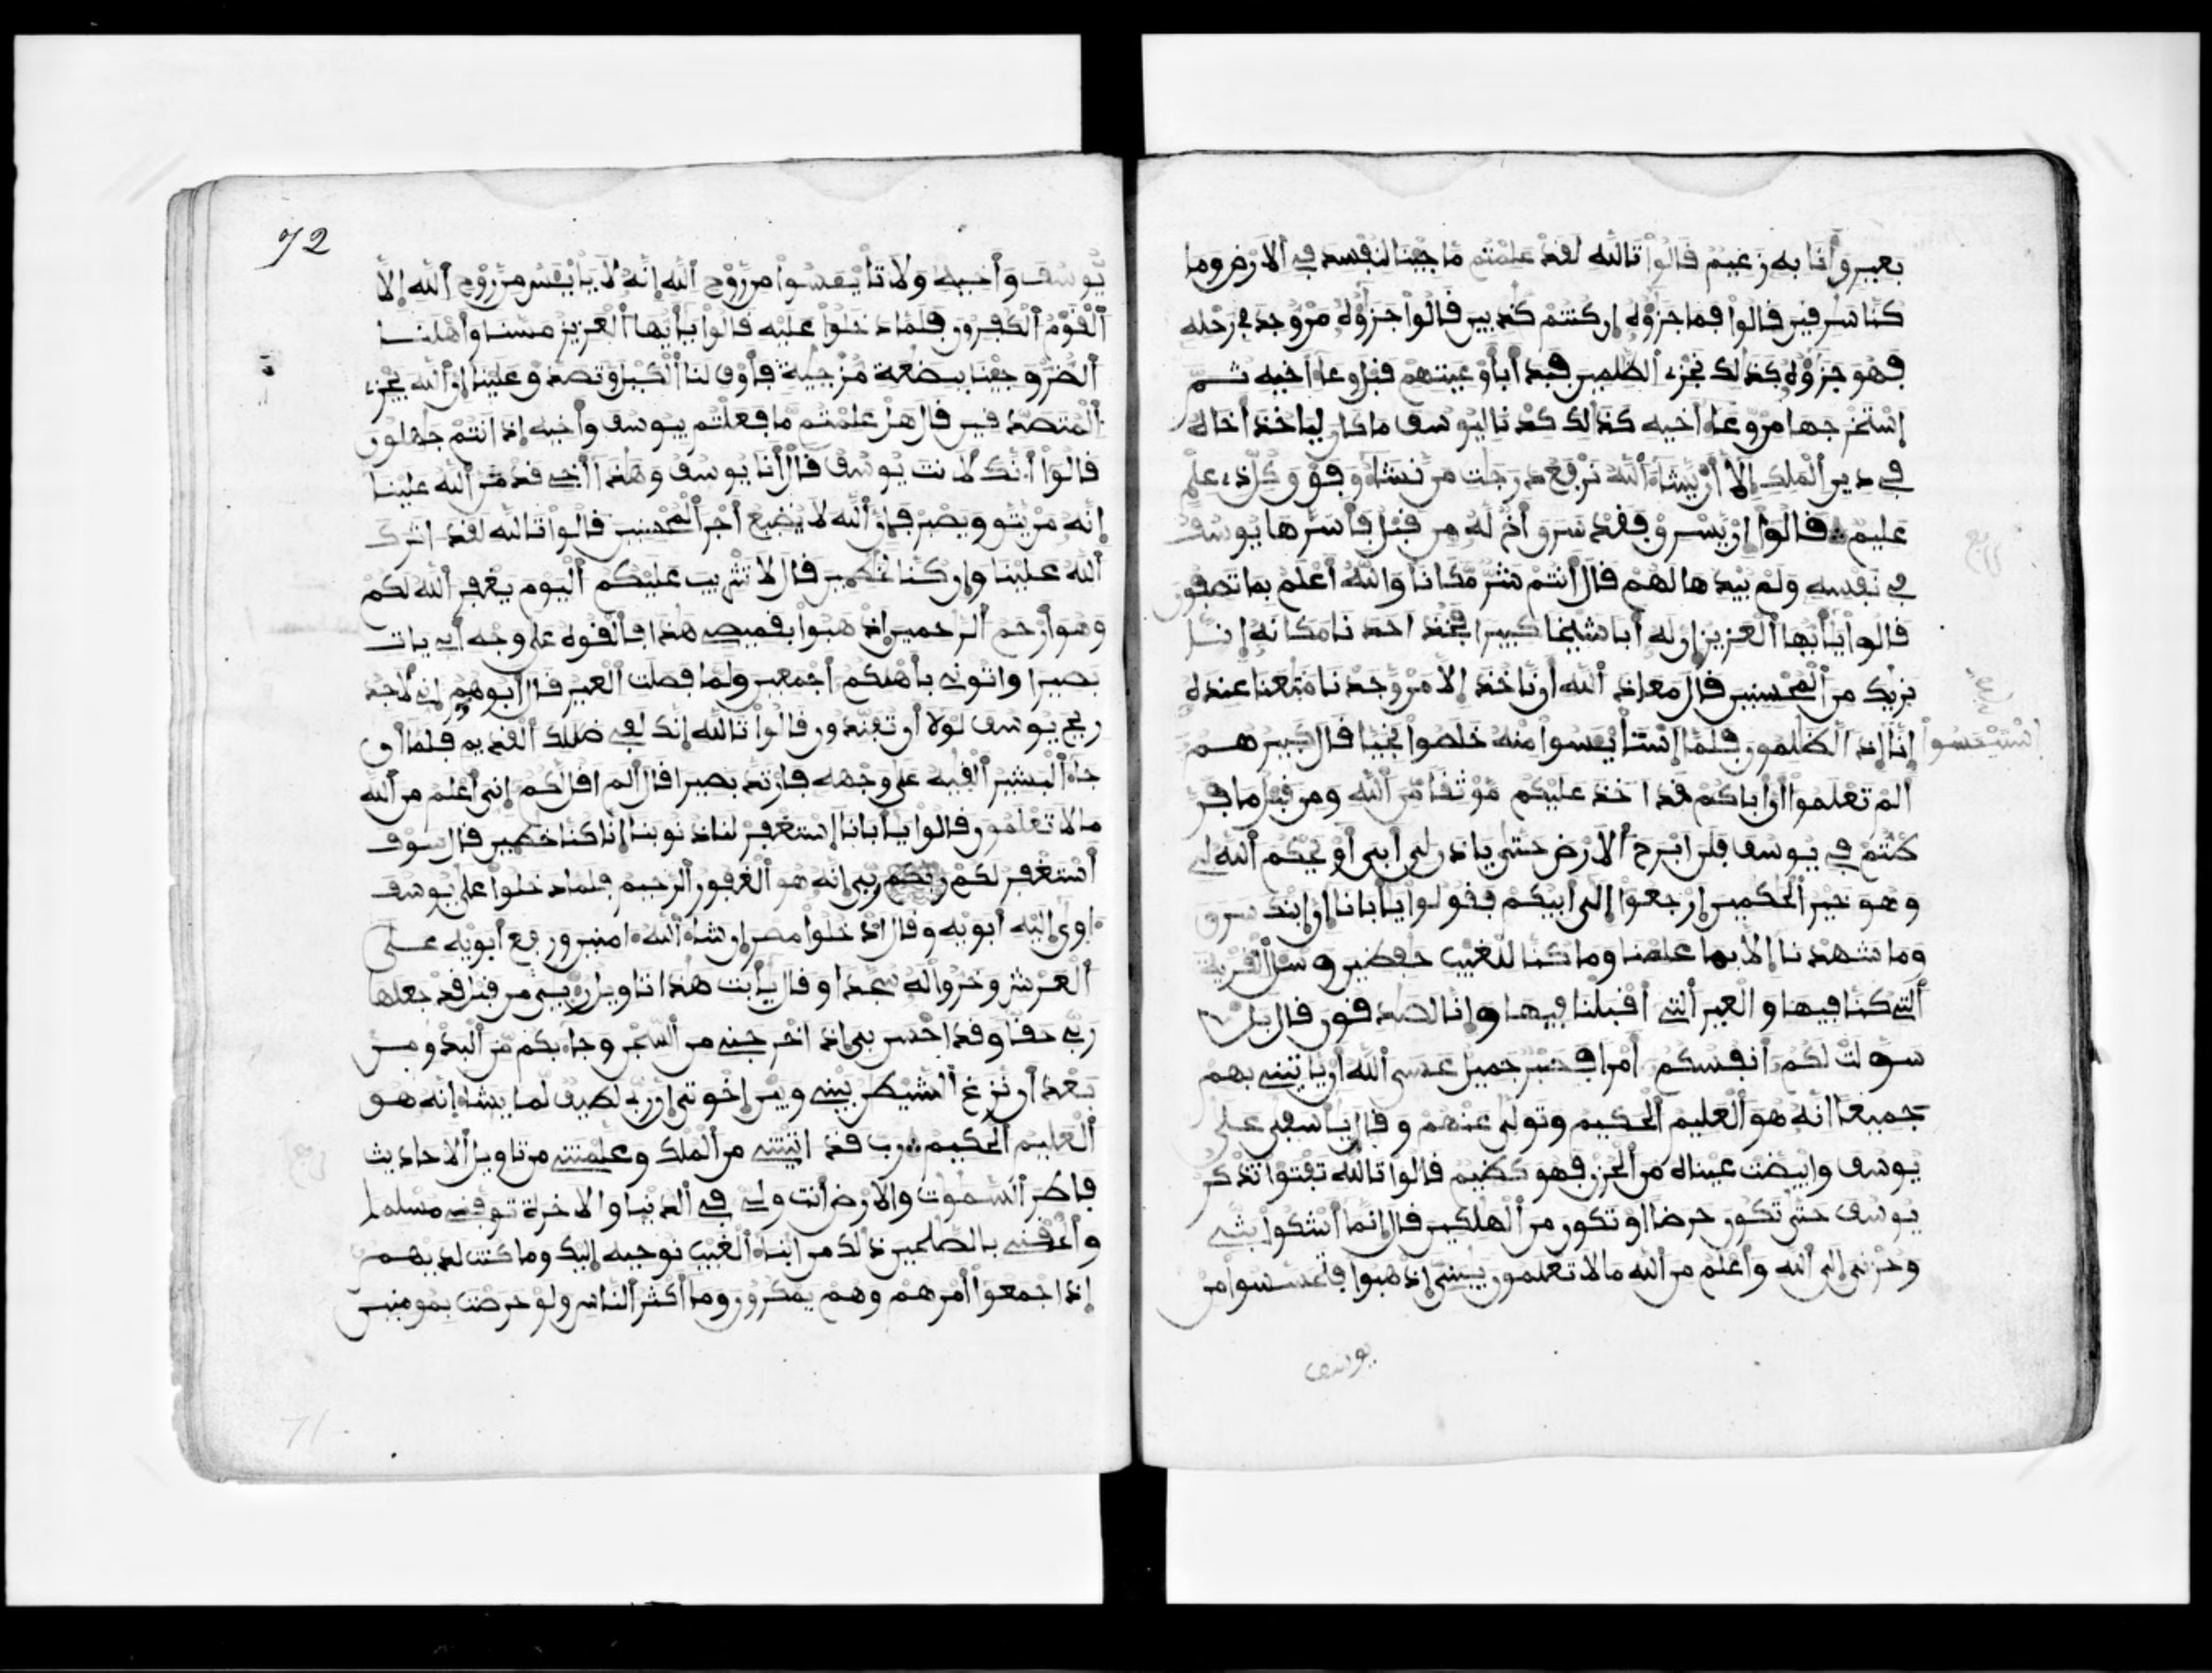 بعير وأنا به زعيم قالوا تالله لقد علمتم ما جينا لنفسد في الارض وما
كنا سرفين قالوا فما جزؤه ان كنتم كذبين قالوا جزؤه من وجد في رحله
فهو جزؤه كذلك نجزي الظلمين فبدأ بأوعيتهم قبل وعاء اخيه ثم
استخرجها من وعاء أخيه كذلك كدنا ليوسف ما كان لياخذ أخاه
في دين الملك إلا أن يشاء الله نرفع درجت من نشاء وفوق كل ذي علم
عليم قالوا ان يسرق فقد سرق أخ له من قبل فأسرها يوسف
في نفسه ولم يبدها لهم قال أنتم شر مكانا والله أعلم بما تصفون
قالوا يأيها العزيز ان له أبا شيخا كبيرا فخذ احدنا مكانه إنا
نريك من المحسنين قال معاذ الله أن ناخذ إلا من وجدنا متعنا عنده
إنا إذا لظلمون فلما استأيئسوا منه خلصوا نجيا قال كبيرهم
الم تعلموا أن اباكم قد اخذ عليكم موثقا من الله ومن قبل ما فر
كتتم في يوسف فلن ابرح الارض حتى ياذن لي أبي أو يحكم الله لي
وهو خير الحكمين ارجعوا إلى أبيكم فقولوا يأبانا إن ابنك سرق
وما شهدنا إلا بما علمنا وما كنا للغيب حفظين وسل القرية
التي كنا فيها والعير التي اقبلنا فيها وإنا لصدقون قال بل
سولت لكم أنفسكم امرا فصبر جميل عسى الله أن ياتيني بهم
جميعا انه هو العليم الحكيم وتولى عنهم وقال يأسفى على
يوسف وابيضت عيناه من الحزن فهو كظيم قالوا تالله تفتوا تذكر
يوسف حتى تكون حرضا او تكون من الهلكين قال إنما أشكوا بثي
وحزني إلى الله وأعلم من الله ما لا تعلمون يبني اذهبوا فتحسسوا من
يوسف
72
يوسف وأخيه ولا تايئسوا من روح الله إنه لا يايئس من روح الله إلا
القوم الكفرون فلما دخلوا عليه قالوا يأيها العزيز مسنا وأهلنا
الضر وجينا ببضعة مزجية فأوف لنا الكيل وتصدق علينا إن الله يجزي
المتصدقين قال هل علمتم ما فعلتم بيوسف وأخيه إذ انتم جهلون
قالوا أنك لانت يوسف قال أنا يوسف وهذا أخي قد من الله علينا
إنه من يتق ويصبر فإن الله لا يضيع أجر المحسنين قالوا تالله لقد اثرك
الله علينا وان كنا لخطين قال لا تثريب عليكم اليوم يغفر الله لكم
وهو أرحم الرحمين اذهبوا بقميصي هذا فألقوه على وجه أبي يات
بصيرا واتوني بأهلكم أجمعين ولما فصلت العير قال أبوهم إني لأجد
ريح يوسف لولا أن تفندون قالوا تالله إنك لفي ضللك القديم فلما أن
جاء البشير ألقيه على وجهه فارتد بصيرا قال ألم اقل لكم إني أعلم من الله
ما لا تعلمون قالوا يأبانا استغفر لنا ذنوبنا إنا كنا خطين قال سوف
أستغفر لكم ربي إنه هو الغفور الرحيم فلما دخلوا على يوسف
اوى إليه أبويه وقال ادخلوا مصر ان شاء الله امنين ورفع أبويه على
العرش وخروا له سجدا وقال يأبت هذا تاويل ريي من قبل قد جعلها
ربي حقا وقد احسن بي إذ اخرجني من السجن وجاء بكم من البدو من
بعد أن نزغ الشيطن بيني وبين إخوتي إن ربي لطيف لما يشاء إنه هو
العليم الحكيم رب قد اتيتني من الملك وعلمتني من تاويل الاحاديث
فاطر السموت والارض انت وليي في الدنيا والاخرة توفني مسلما
وألحقني بالصلحين ذلك من انباء الغيب نوحيه إليك وما كنت لديهم
إذ اجمعوا أمرهم وهم يمكرون وما أكثر الناس ولو حرصت بمومنين
71